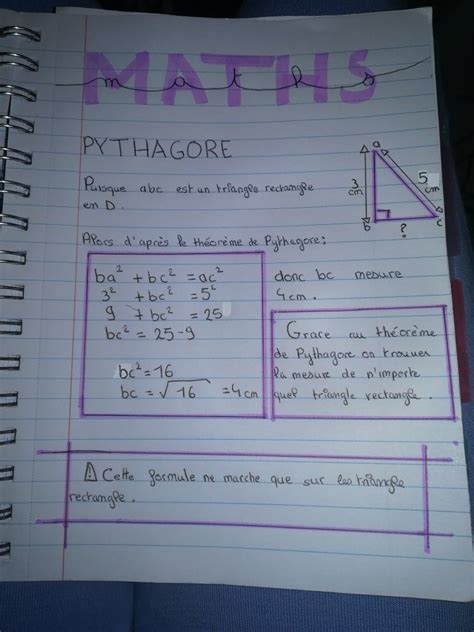 MATHS
maths
PYTHAGORE
Puisque abc est un triangle rectangle
en D.
a
3
cm
5
cm
b
?
c
Alors d'après le théorème de Pythagore:
ba² + bc² = ac²
3² + bc² = 5²
9 + bc² = 25
bc² = 25-9
bc² = 16
bc = √16 = 4cm
donc bc mesure
4cm.
Grace au théorème
de Pythagore on trouver
la mesure de n'importe
quel triangle rectangle.
⚠ Cette formule ne marche que sur les triangle
rectangle.